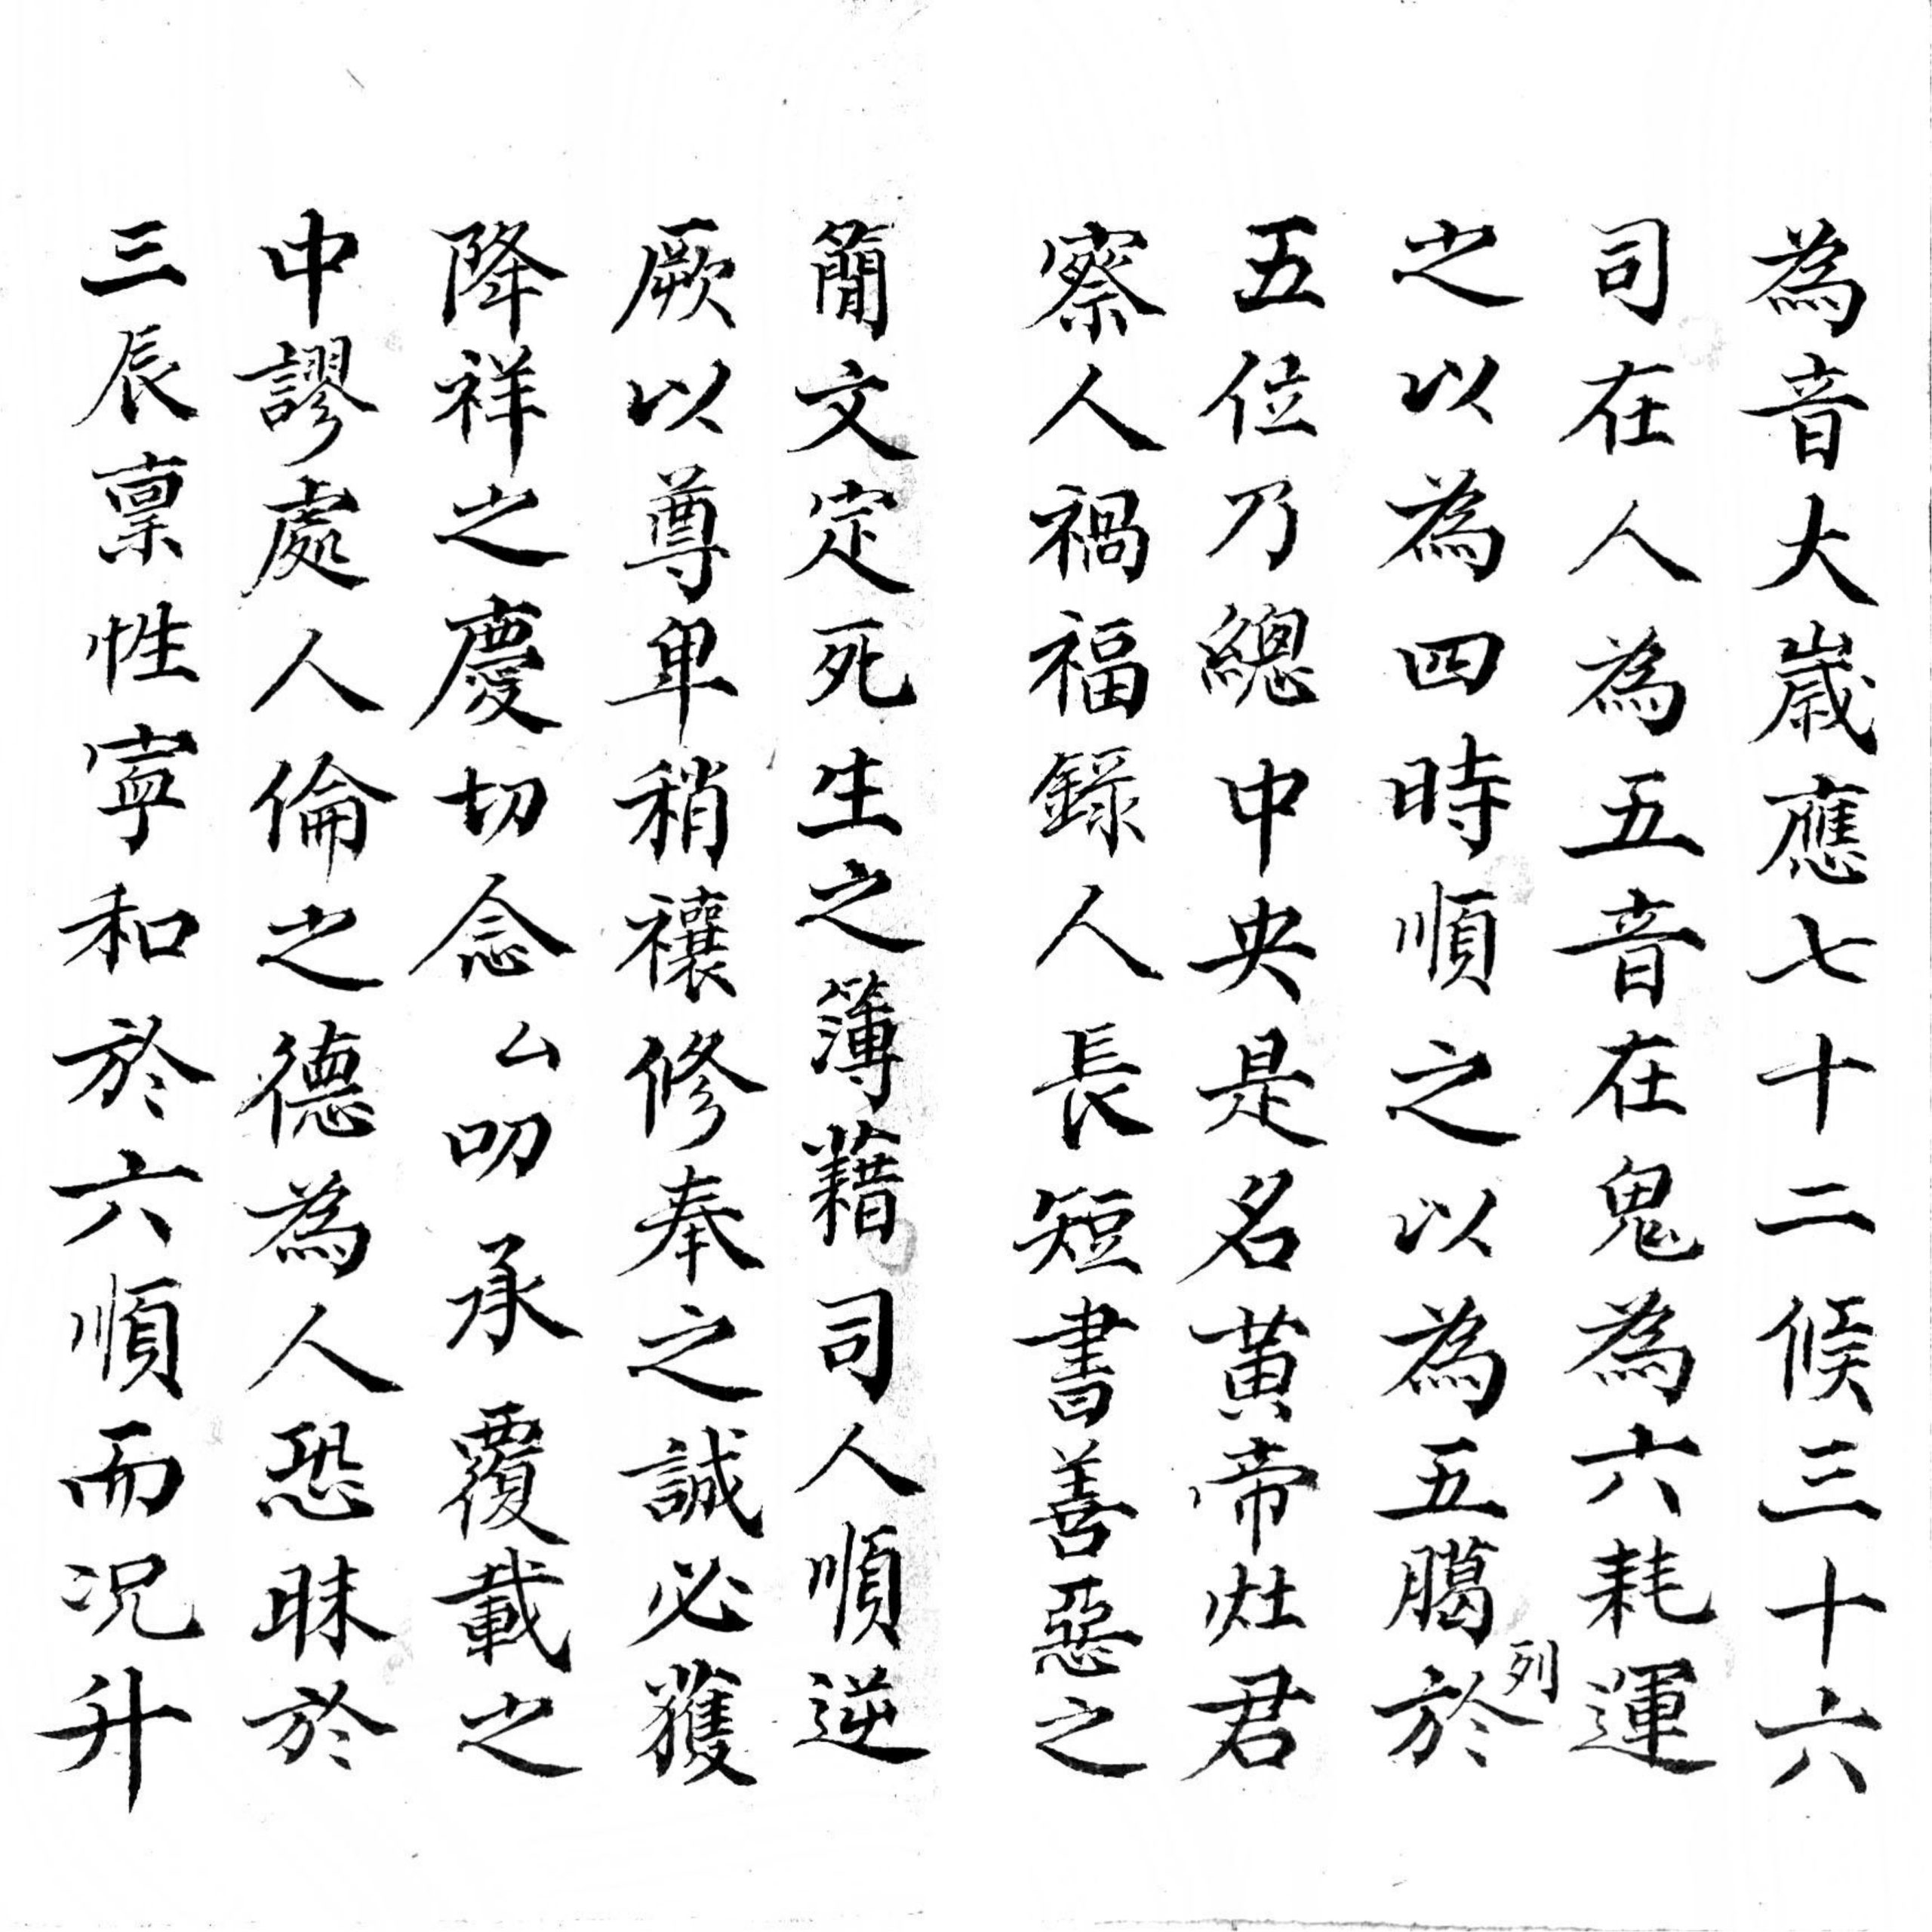 為音大歲應七十二候三十六
司在人為五音在鬼為六耗運
之以為四時順之以為五臈於列
五位乃總中央是名黃帝灶君
察人禍福錄人長短書善惡之
簡文定死生之簿藉司人順逆
厥以尊卑稍禳修奉之誠必獲
降祥之慶切念厶叨承覆載之
中謬處人倫之德為人恐昧於
三辰禀性寧和於六順而况升